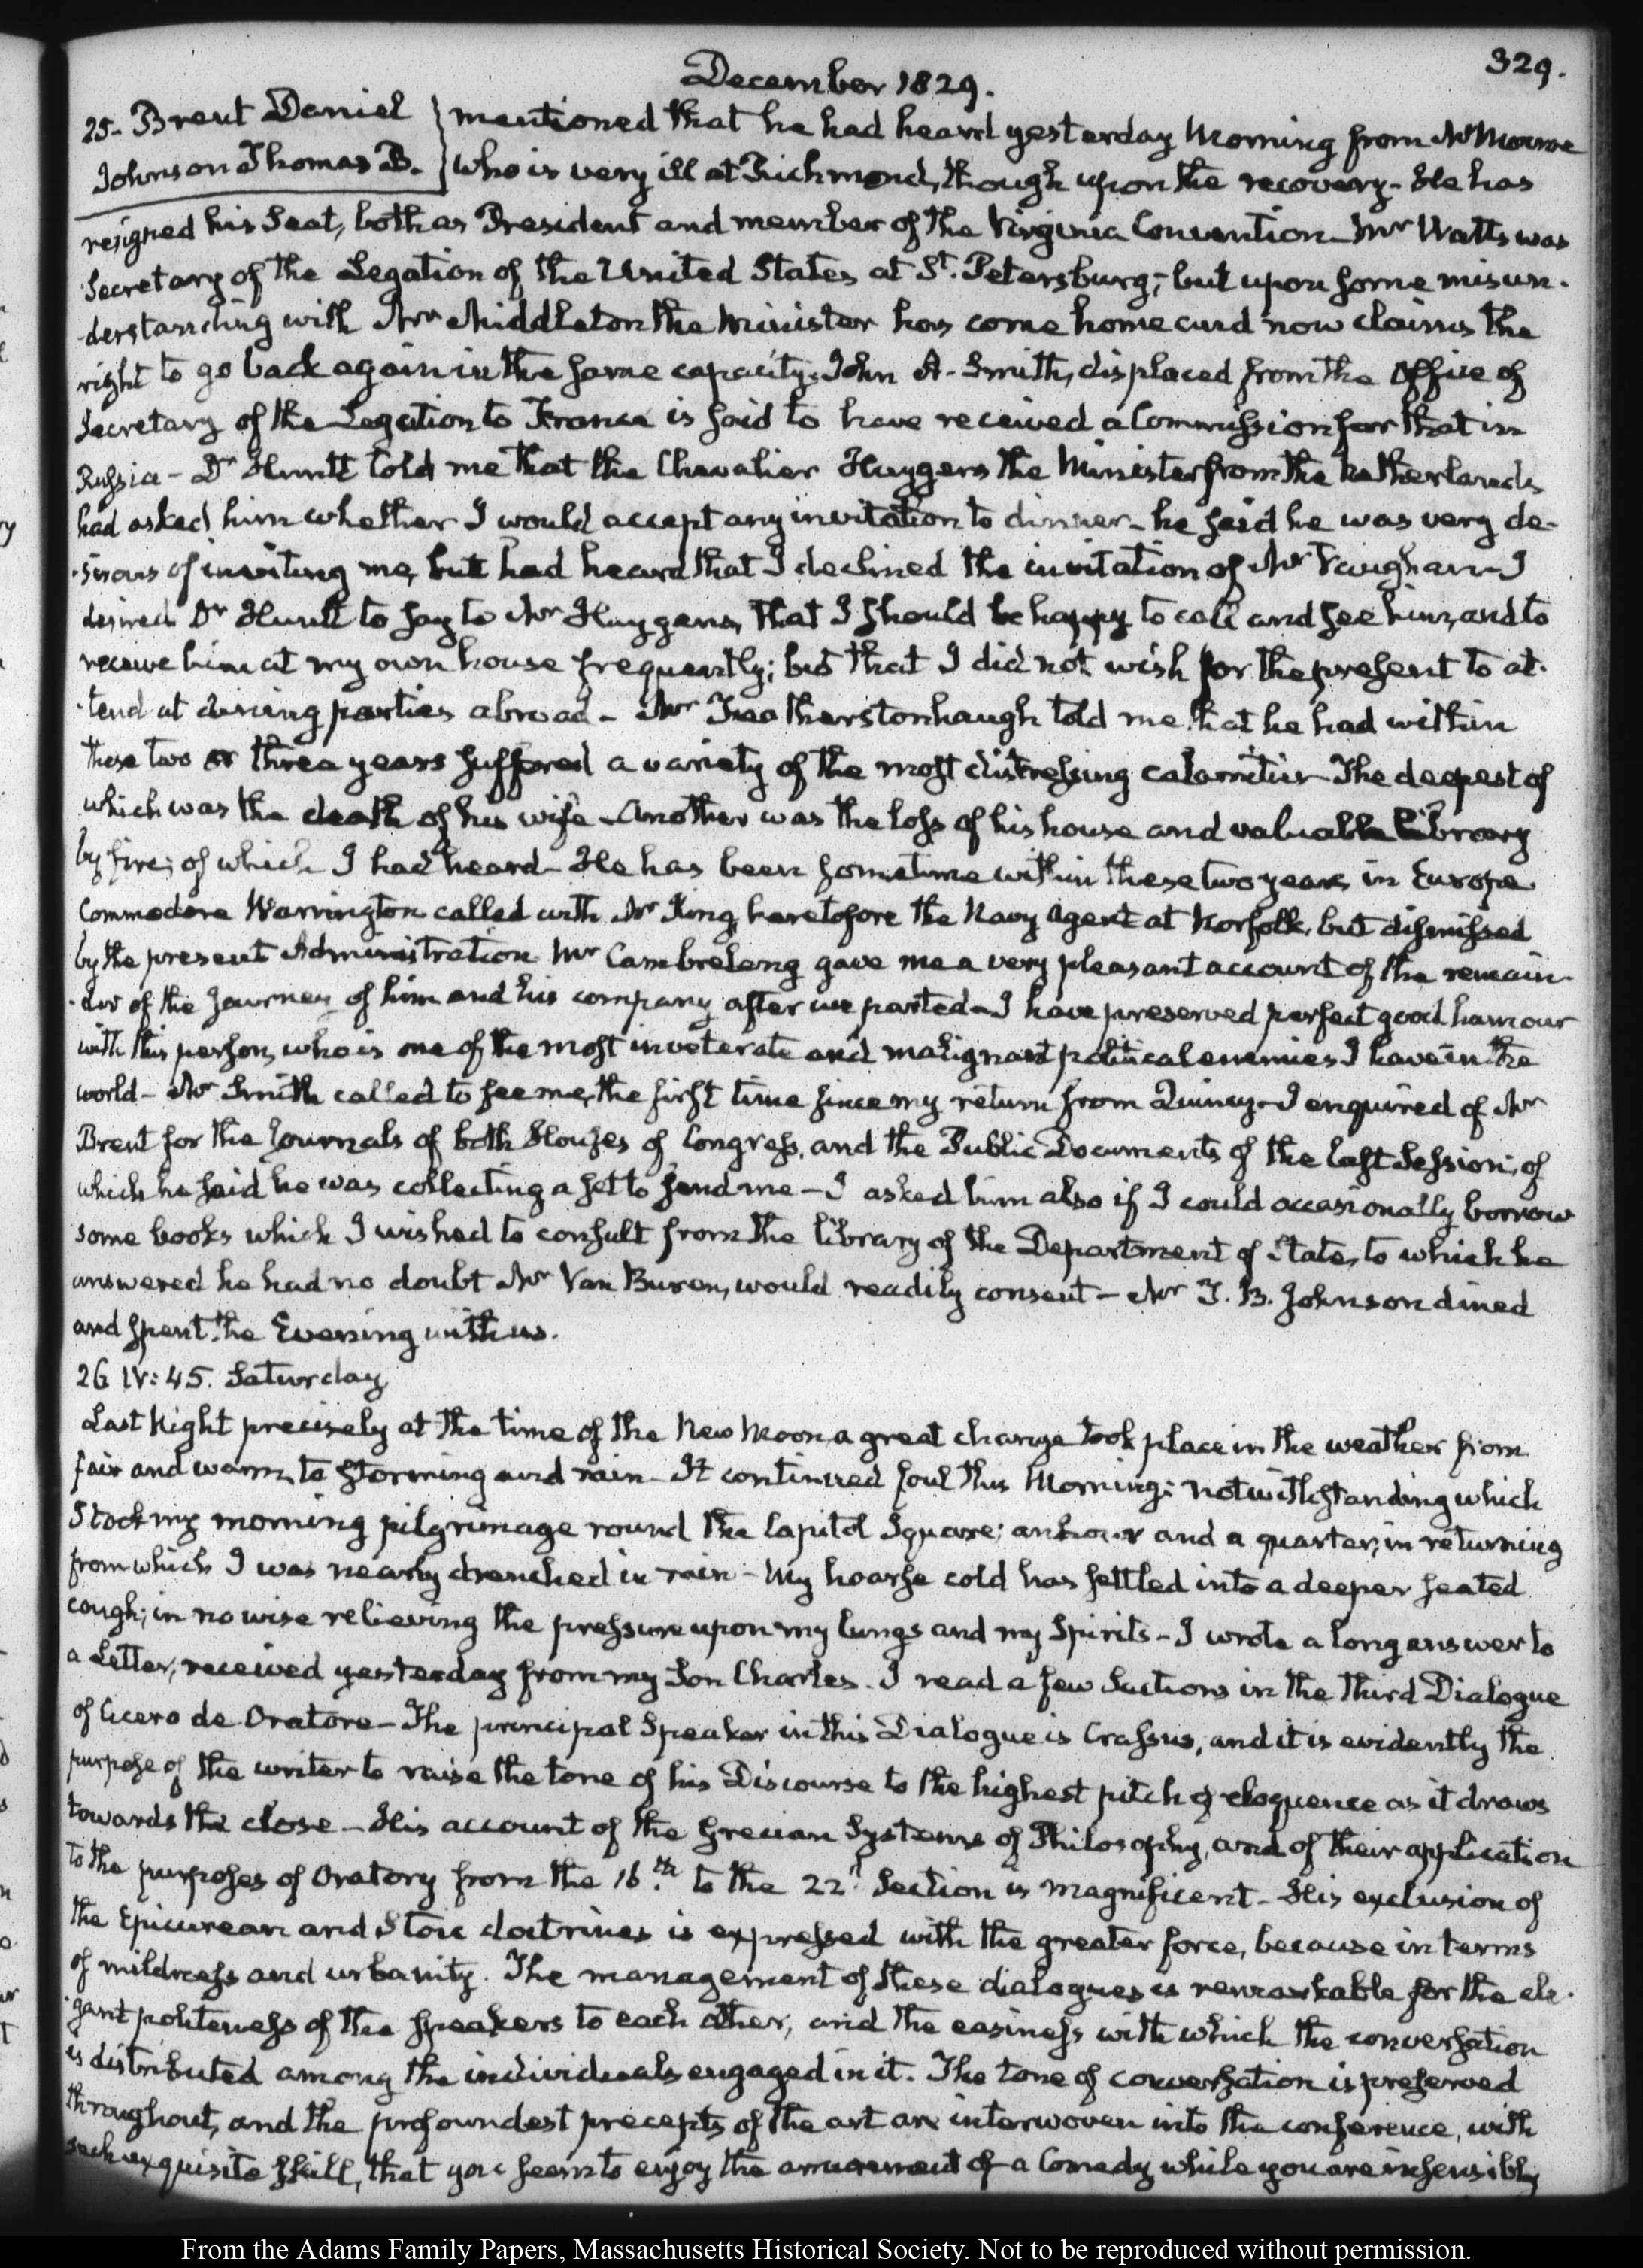 329.
December 1829.
25- Brent Daniel } mentioned that he had heard yesterday Morning from Mr Monroe
Johnson Thomas B. } who is very ill at Richmond, though upon the recovery- He has
resigned his Seat, both as President and member of the Virginia Convention- Mr Watts was
Secretary of the Legation of the United States at St. Petersburg; but upon some misun-
-derstanding with Mr Middleton the Minister has come home and now claims the
right to go back again in the same capacity. John A. Smith, displaced from the Office of
Secretary of the Legation to France is said to have received a Commission for that in
Russia - Dr Huntt told me that the Chevalier Huygens the Minister from the Netherlands
had asked him whether I would accept any invitation to dinner- he said he was very de-
-sirous of inviting me, but had heard that I declined the invitation of Mr Vaughan- I
desired Dr Huntt to say to Mr Huygens, that I should be happy to call and see him, and to
receive him at my own house frequently; but that I did not wish for the present to at-
-tend at dining parties abroad - Mr Featherstonhaugh told me that he had within
these two or three years suffered a variety of the most distressing calamities- The deepest of
which was the death of his wife - Another was the loss of his house and valuable library
by fire; of which I had heard- He has been sometime within these two years in Europe.
Commodore Warrington called with Mr King, heretofore the Navy Agent at Norfolk, but dismissed
by the present Administration. Mr Cambreleng gave me a very pleasant account of the remain-
-der of the journey of him and his company after we parted- I have preserved perfect good humour
with this person, who is one of the most inveterate and malignant political enemies I have in the
world - Mr Smith called to see me, the first time since my return from Quincy- I enquired of Mr
Brent for the Journals of both Houses of Congress, and the Public Documents of the last Session; of
which he said he was collecting a set to send me - I asked him also if I could occasionally borrow
some books which I wished to consult from the library of the Department of State, to which he
answered he had no doubt Mr Van Buren, would readily consent - Mr T. B. Johnson dined
and spent the Evening with us.
26 IV: 45. Saturday
Last Night precisely at the time of the New Moon a great change took place in the weather from
fair and warm, to storming and rain- It continued foul this Morning; notwithstanding which
I took my morning pilgrimage round the Capitol Square; an hour and a quarter, in returning
from which I was nearly drenched in rain - My hoarse cold has settled into a deeper seated
cough; in no wise relieving the pressure upon my lungs and my Spirits - I wrote a long answer to
a Letter, received yesterday from my Son Charles. I read a few Sections in the third Dialogue
of Cicero de Oratore- The principal Speaker in this Dialogue is Crassus, and it is evidently the
purpose of the writer to raise the tone of his Discourse to the highest pitch of eloquence as it draws
towards the close - His account of the Grecian Systems of Philosophy, and of their application
to the purposes of Oratory from the 16.th to the 22d. Section is magnificent- His exclusion of
the Epicurean and Stoic doctrines is expressed with the greater force, because in terms
of mildness and urbanity. The management of these dialogues is remarkable for the ele-
-gant politeness of the speakers to each other, and the easiness with which the conversation
is distributed among the individuals engaged in it. The tone of conversation is preserved
throughout, and the profoundest precepts of the art are interwoven into the conference, with
such exquisite skill, that you seem to enjoy the amusement of a Comedy while you are insensibly
From the Adams Family Papers, Massachusetts Historical Society. Not to be reproduced without permission.